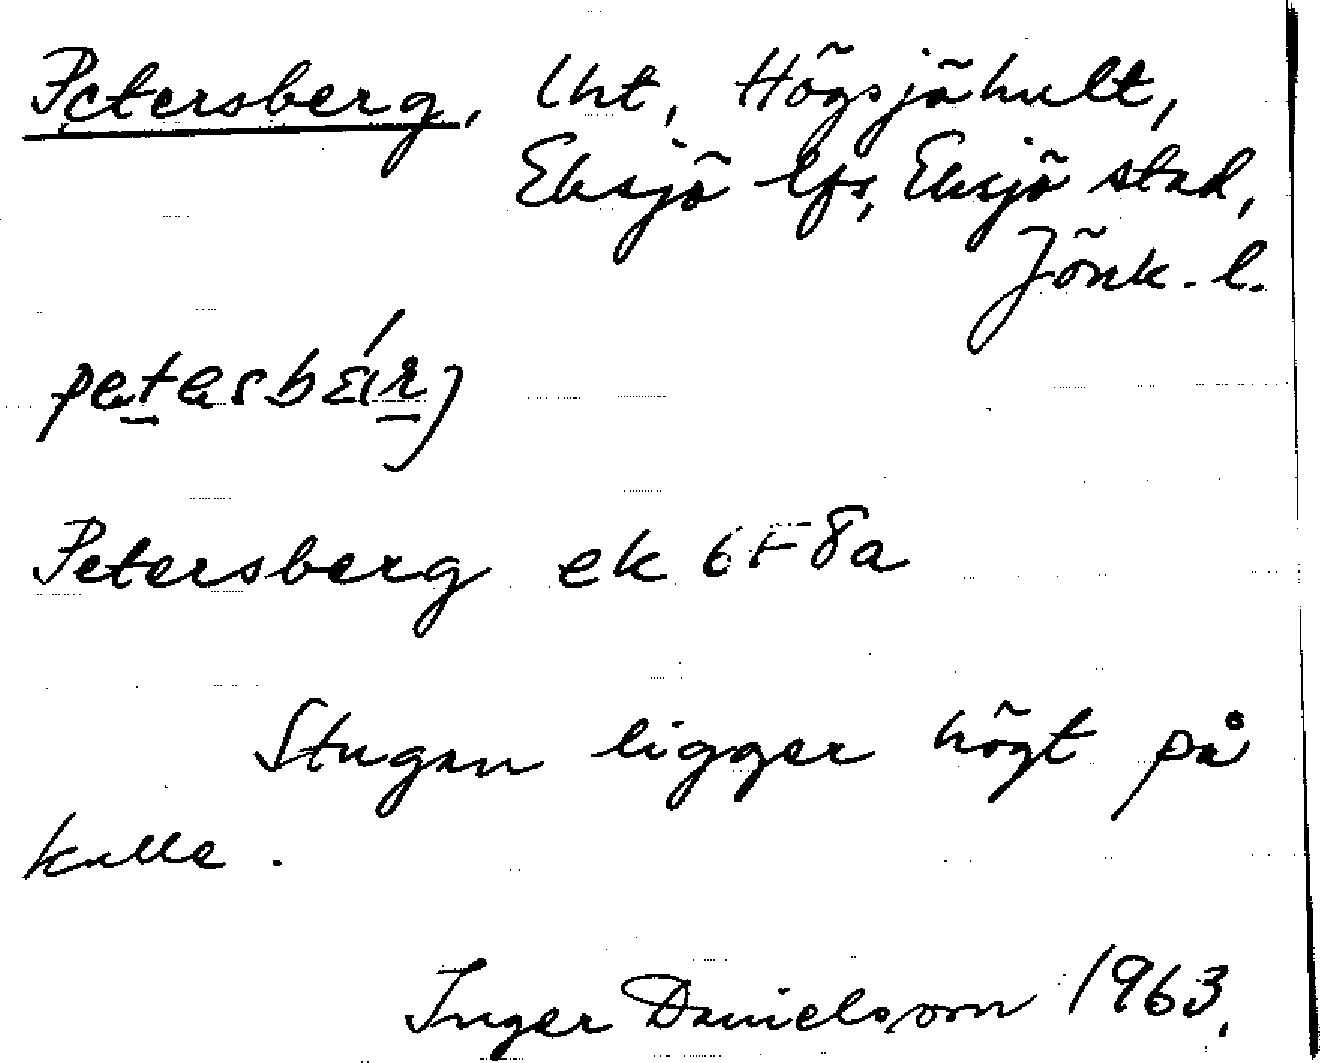 Petersberg, lht, Högsjöhult,
Eksjö lfs, Eksjö stad,
Jönk. l.
Petersberg ek 6F 8a
Stugan ligger högt på
kulle.
Inger Danielsson 1963.